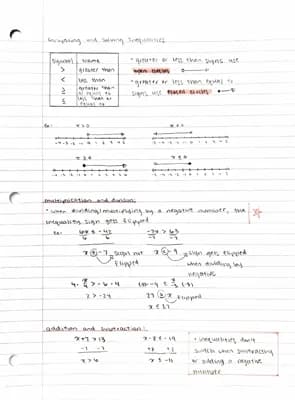 Graphing and Solving Inequalities
Symbol Name
> greater than
< less than
≥ greater than or equal to
≤ less than or equal to
• greater or less than signs use
open circles
• greater or less than equal to
signs use closed circles
ex:
x > 0
x < 0
x ≥ 0
x ≤ 0
multiplication and division:
• when dividing/multiplying by a negative number, the
inequality sign gets flipped
ex:
x > -7
sign not
flipped
sign gets flipped
when dividing by
negative
flipped
addition and subtraction:
x+7 > 13
-7 -7
x > 6
x-8 ≤ -19
+8 +8
x ≤ -11
• inequalities don't
switch when subtracting
or adding a negative
number